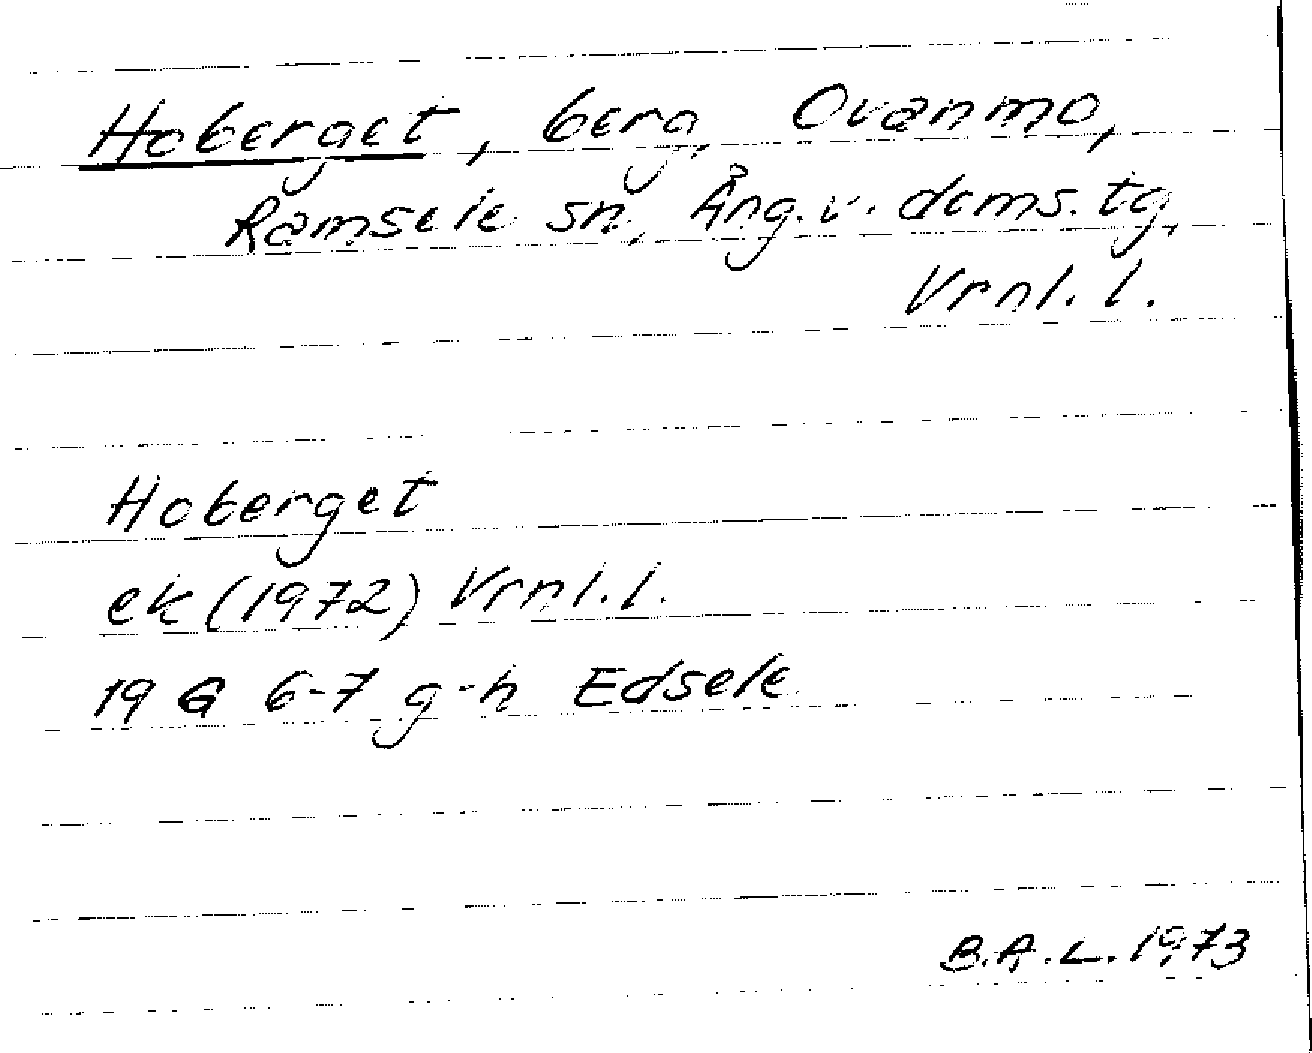 Hoberget, berg, Ovanmo,
Ramsele sn, Ång.v. doms.tg,
Vrnl. l.
Hoberget
ek (1972) Vrnl. l.
19 G 6-7 g-h Edsele
B.A.L. 1973